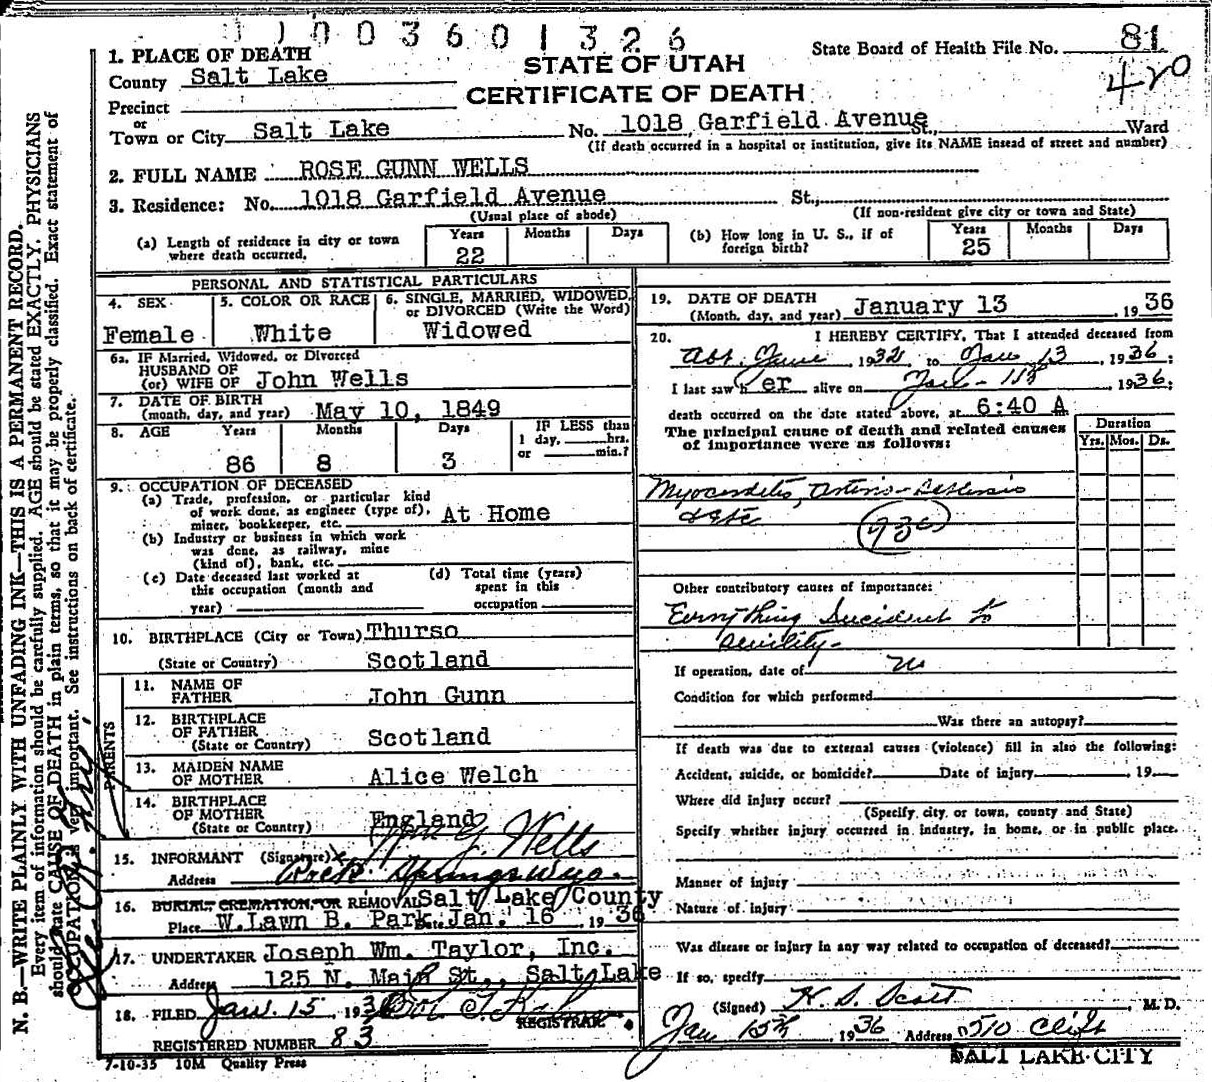 1003601326
81
420
State Board of Health File No.
STATE OF UTAH
CERTIFICATE OF DEATH
1. PLACE OF DEATH
County Salt Lake
Precinct
or
Town or City Salt Lake No. 1018 Garfield Avenue St., Ward
(If death occurred in a hospital or institution, give its NAME insead of street and number)
2. FULL NAME ROSE GUNN WELLS
3. Residence: No. 1018 Garfield Avenue St.,
(Usual place of abode) (If non-resident give city or town and State)
(a) Length of residence in city or town where death occurred. Years 22 Months Days
(b) How long in U. S., if of foreign birth? Years 25 Months Days
PERSONAL AND STATISTICAL PARTICULARS
4. SEX Female
5. COLOR OR RACE White
6. SINGLE, MARRIED, WIDOWED, or DIVORCED (Write the Word) Widowed
6a. IF Married, Widowed, or Divorced
HUSBAND OF
(or) WIFE OF John Wells
7. DATE OF BIRTH
(month, day, and year) May 10, 1849
8. AGE Years 86 Months 8 Days 3 IF LESS than 1 day, hrs. or min.?
9. OCCUPATION OF DECEASED
(a) Trade, profession, or particular kind
of work done, as engineer (type of),
miner, bookkeeper, etc. At Home
(b) Industry or business in which work
was done, as railway, mine
(kind of), bank, etc.
(c) Date deceased last worked at this occupation (month and year)
(d) Total time (years) spent in this occupation
10. BIRTHPLACE (City or Town) Thurso
(State or Country) Scotland
PARENTS
11. NAME OF FATHER John Gunn
12. BIRTHPLACE OF FATHER
(State or Country) Scotland
13. MAIDEN NAME OF MOTHER Alice Welch
14. BIRTHPLACE OF MOTHER
(State or Country) England
15. INFORMANT (Signature) x Wm G. Wells
Address Rock Springs Wyo.
16. BURIAL, CREMATION, OR REMOVAL Salt Lake County
Place W. Lawn B. Park Date Jan. 16, 1936
17. UNDERTAKER Joseph Wm. Taylor, Inc.
Address 125 N. Main St., Salt Lake
18. FILED Jan. 15, 1936
REGISTRAR.
REGISTERED NUMBER 83
7-10-35 10M Quality Press
19. DATE OF DEATH
(Month, day, and year) January 13, 1936
20. I HEREBY CERTIFY, That I attended deceased from
Abt. June, 1932 to Jan 13, 1936;
I last saw h er alive on Jan-, 1936;
death occurred on the date stated above, at 6:40 A
The principal cause of death and related causes
of importance were as follows:
Duration
Yrs. Mos. Ds.
Myocarditis, arterio-
930
Other contributory causes of importance:
Everything incident to
senility-
If operation, date of no
Condition for which performed
Was there an autopsy?
If death was due to external causes (violence) fill in also the following:
Accident, suicide, or homicide? Date of injury , 19
Where did injury occur?
(Specify city, or town, county and State)
Specify whether injury occurred in industry, in home, or in public place.
Manner of injury
Nature of injury
Was disease or injury in any way related to occupation of deceased?
If so, specify
(Signed) H. S. Scott, M. D.
Jan 15th, 1936 Address 510 Clift
SALT LAKE CITY
N. B.—WRITE PLAINLY WITH UNFADING INK—THIS IS A PERMANENT RECORD.
Every item of information should be carefully supplied. AGE should be stated EXACTLY. PHYSICIANS
should state CAUSE OF DEATH in plain terms, so that it may be properly classified. Exact statement of
OCCUPATION is very important. See instructions on back of certificate.